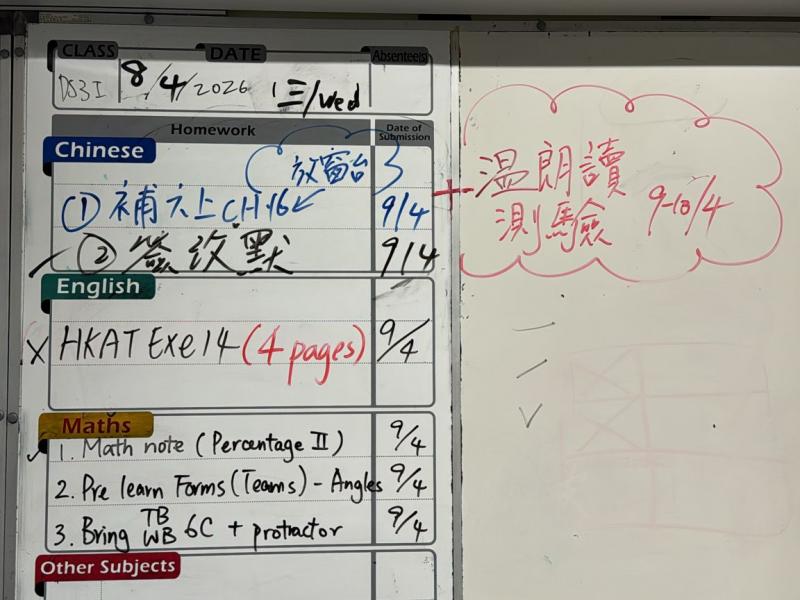 CLASS DATE Absentee(s)
8/4/2026 三/Wed
Homework Date of Submission
Chinese
放窗台
① 補六上CH16 9/4
② 簽改默 9/4
+ 溫朗讀
測驗 9-10/4
English
X HKAT Exe 14 (4 pages) 9/4
Maths
✓ 1. Math note (Percentage II) 9/4
2. Pre learn Forms (Teams) - Angles 9/4
3. Bring TB WB 6C + protractor 9/4
Other Subjects